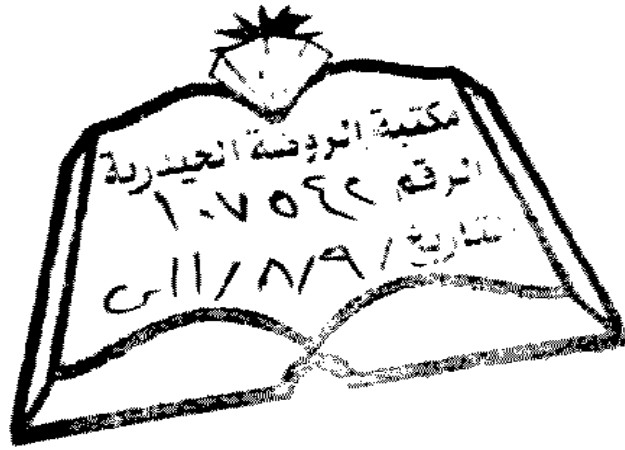 مكتبة الروضة الحيدرية
الرقم ١٠٧٥٤٢
التاريخ / ٩/٨/١١